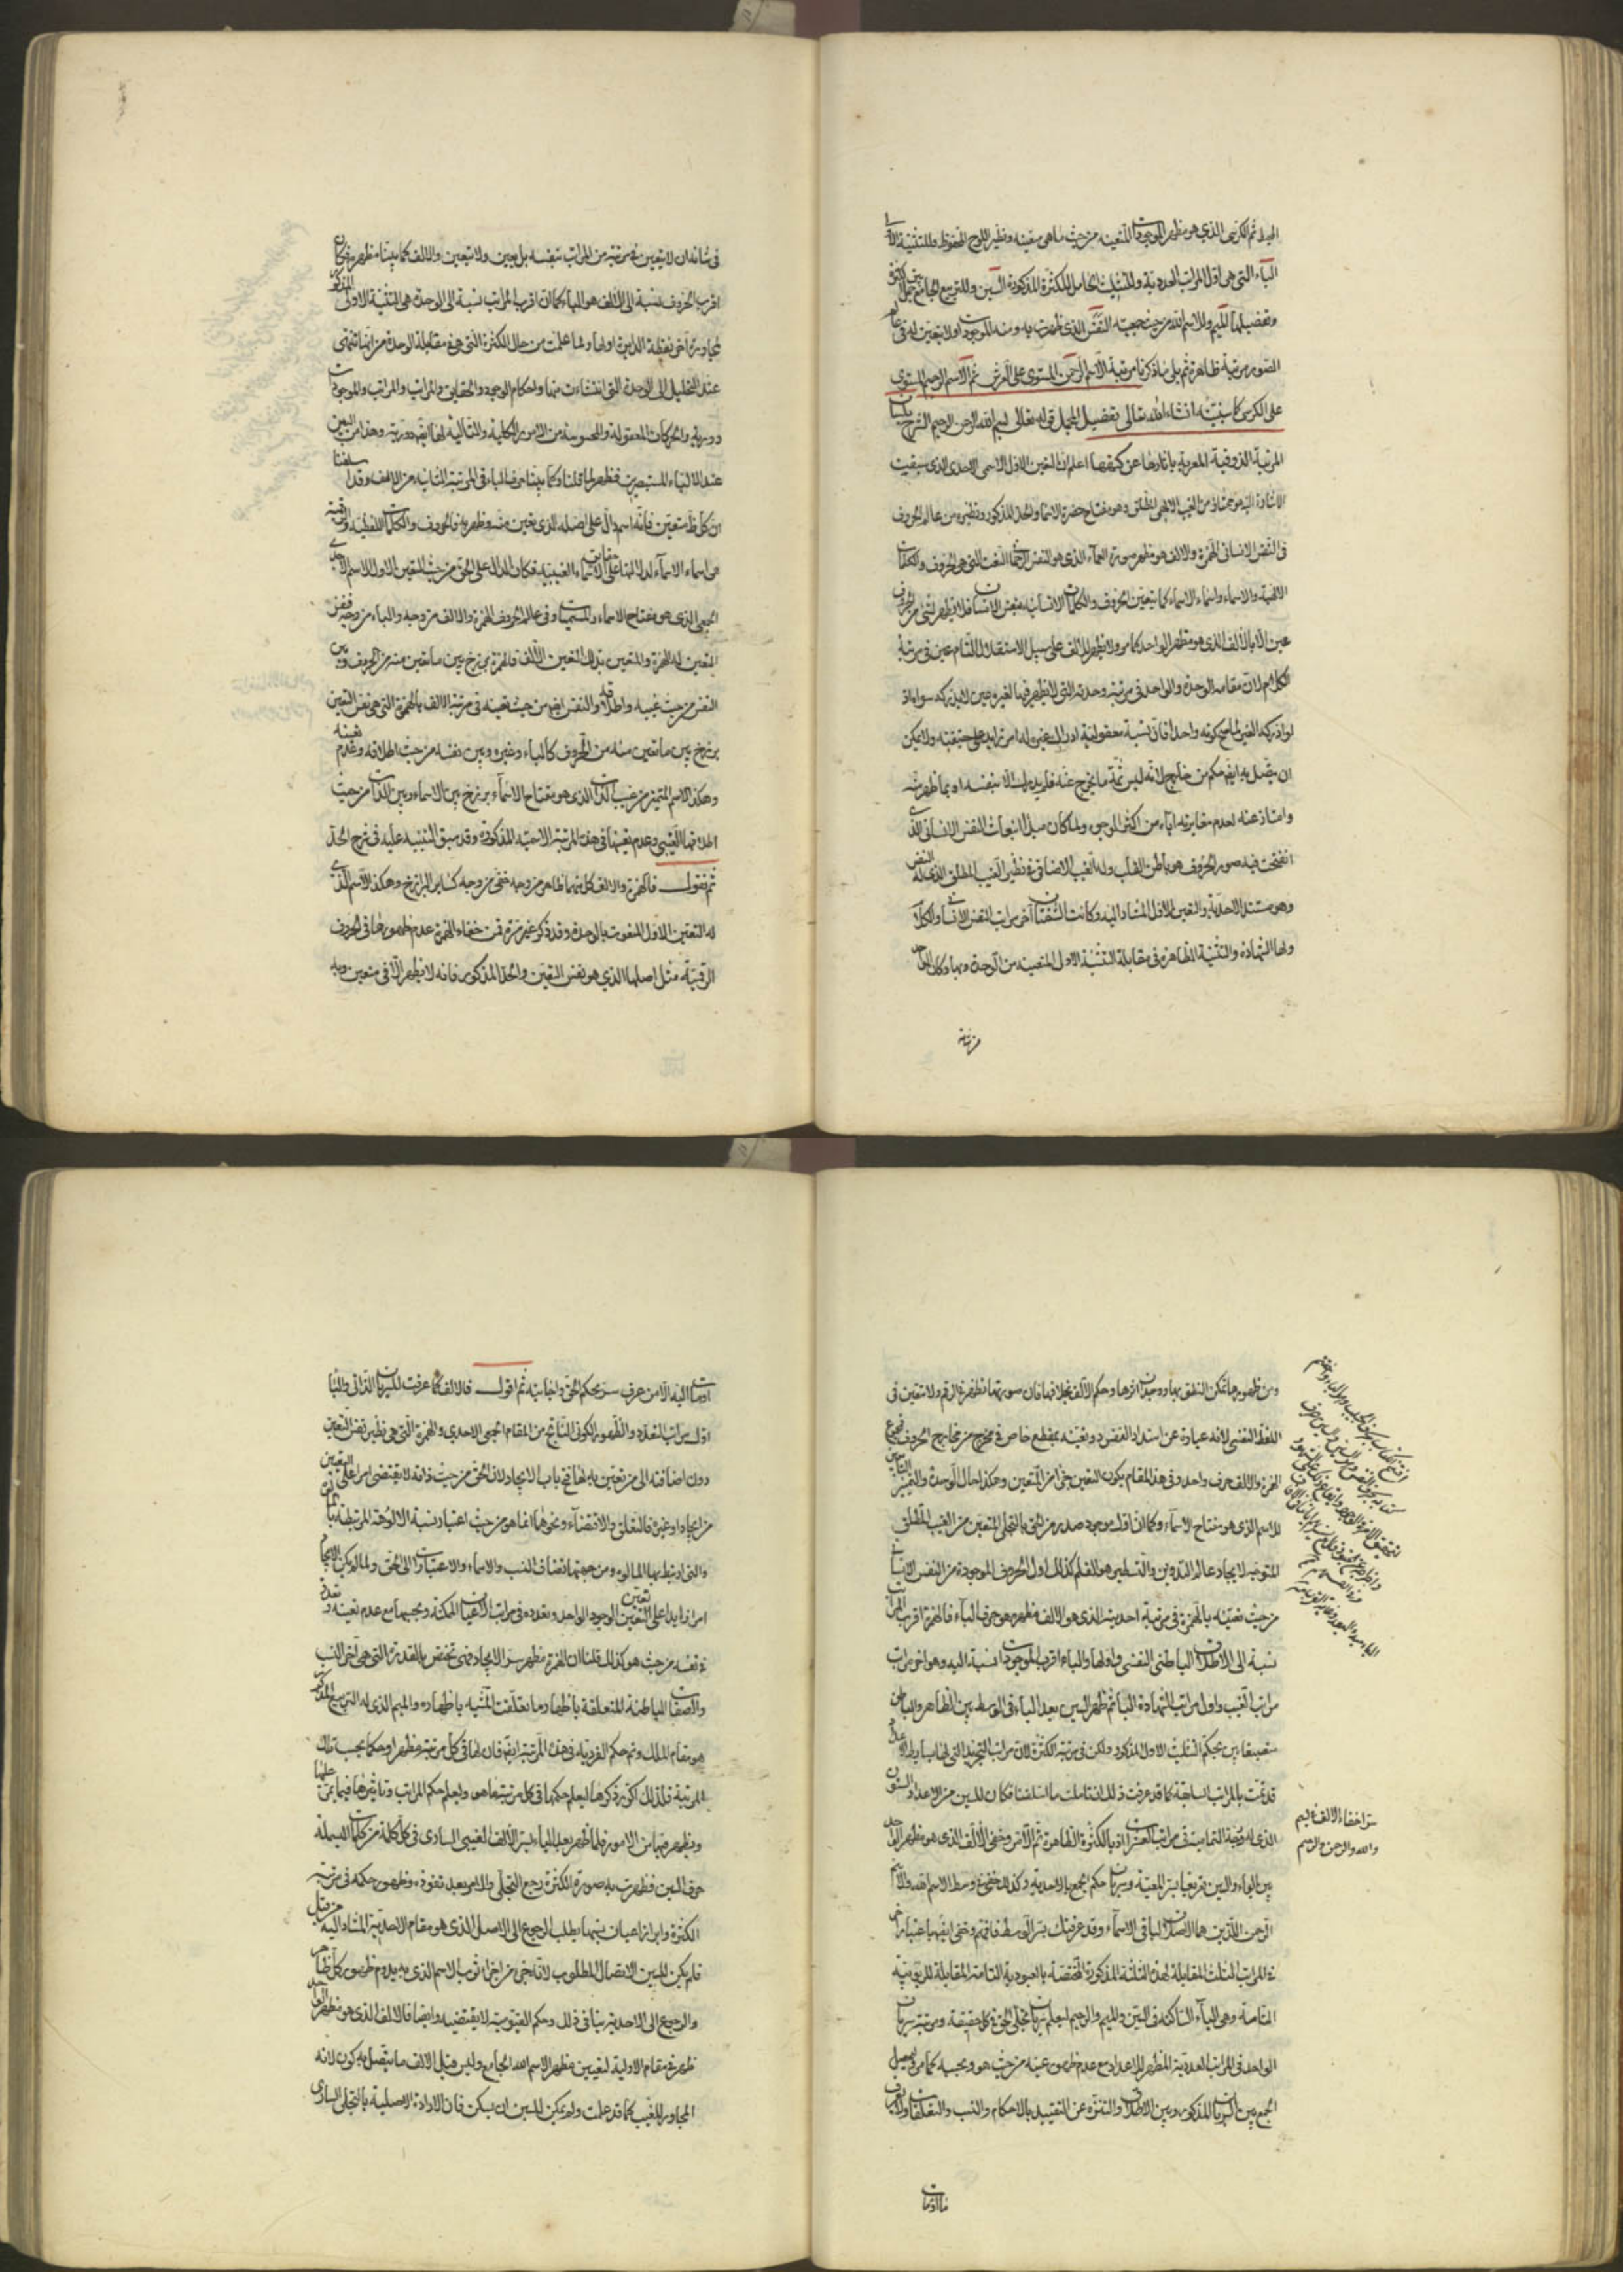 المجيد ثم الكرسي الذي هو مظهر الموجودات المتعينة من حيث ما هي متعينة ونظير اللوح المحفوظ وللتثنية الأولى
الباء التي هي اول المراتب العددية وللتثليث الحامل للكثرة المذكورة السين وللتربيع الجامع بين الكثرة
وتفصيلها الميم وللاسم الله من حيث جمعيته النفس الذي ظهرت به ومنه الموجودات ولا يتعين له في عالم
الصور مرتبة ظاهرة ثم يلي ما ذكرنا مرتبة الاسم الرحمن المستوى على العرش ثم الاسم الرحيم المستوى
على الكرسي كما سنبينه ان شاء الله تعالى تفصيل المجمل قوله تعالى بسم الله الرحمن الرحيم الشرح بلسان
المرتبة الذوقية المعربة باثارها عن كنهها اعلم ان التعين الاول الاسمي الاحدي الذي سبقت
الاشارة اليه هو ممتاز من الغيب الالهي المطلق وهو مفتاح حضرة الاسما والحد المذكور ونظيره من عالم الحروف
في النفس الانساني الهمزة والالف هو مظهر صورة العماء الذي هو النفس الرحماني
الالهية والاسماء واسماء الاسماء كما تتعين الحروف والكلمات الانسانية بنفس الانسان فلا يظهر لشي من الحروف
عين الا بالالف الذي هو مظهر الواحد كما مر ولا يظهر للالف على سبيل الاستقلال التام عين في مرتبة
الكلام لان مقامه الوحدة والواحد في مرتبة وحدته التي لا يظهر فيها لغيره عين لا يدركه سواه اذ
لو ادركه الغير لما صح كونه واحدا فان نسبة معقولية ادراك غيره له امر زايد على حقيقته ولا يمكن
ان يتصل به ايضا حكم من خارج لانه ليس ثمة ما يخرج عنه فلم يدرك الا بنفسه او بما ظهر منه
وامتاز عنه لعدم مغايرته اياه من اكثر الوجوه ولما كان مبدأ انبعاث النفس الانساني الذي
انفتحت فيه صور الحروف هو باطن القلب وله الغيب الاضافي في نظير الغيب المطلق الذي له النفس
وهو مستند الاحدية والتعين الاول المشار اليه وكانت الشفتان آخر مراتب النفس الانساني والكلام
ولها الشهادة والتثنية الظاهرة في مقابلة التثنية الاولى المتعينة من الوحدة وبها وكان الواحد
في شانه ان لا يتعين في مرتبة من المراتب بنفسه بل يعين ولا يتعين والالف كما بينا مظهره فكان
اقرب الحروف نسبة الى الالف هو الباء كما ان اقرب المراتب نسبة الى الوحدة هي التثنية الاولى المذكورة
لمجاورة آخر نقطة الدايرة اولها ولما علمت من حال الكثرة التي هي في مقابلة الوحدة من انها تنتهي
عند التحليل الى الوحدة التي انتشأت منها واحكام الوجود والحقايق والمراتب والموجودات
دورية والحركات المعقولة والمحسوسة من الامور الكلية والتالية لها ايضا دورية وهذا من البين
عند الالباء المستبصرين فظهر لما قلنا وكما بينا حرف الباء في المرتبة الثانية من الالف وقد اسلفنا
ان كل ظاهر متعين فانه اسم دال على اصله الذي تعين منه وظهر به فالحروف والكلمات اللفظية والرقمية
هي اسماء الاسماء لدلالتها على حقايق الاسماء الغيبية فكان الدال على الحق من حيث التعين الاول للاسم الاحدي
الجمعي الذي هو مفتاح الاسماء والمسميات وفي عالم الحروف الهمزة والالف من وجه والباء من وجه
المتعين له الهمزة والمتعين بذلك التعين الالف فالهمزة برزخ بين ما تعين منه من الحروف وبين
النفس من حيث غيبه واطلاقه والنفس ايضا من حيث تعينه في مرتبة الالف بالهمزة التي هي نفس التعين
برزخ بين ما تعين منه من الحروف كالباء وغيره وبين نفسه من حيث اطلاقه وعدم تعينه
وهكذا الاسم المتميز من غيب الذات الذي هو مفتاح الاسماء برزخ بين الاسماء وبين الذات من حيث
اطلاقها الغيبي وعدم تعينها في هذه المرتبة الاسمية المذكورة وقد سبق التنبيه عليه في شرح الحد
ثم نقول فالهمزة والالف كل منهما ظاهر من وجه خفي من وجه كساير البرازخ وهكذا الاسم الذي
له التعين الاول المنعوت بالوحدة وقد ذكر غير مرة فمن خفاء الهمزة عدم ظهورها في الحروف
الرقمية مثل اصلها الذي هو نفس التعين والحد المذكور فانه لا يظهر الا في متعين وبه
ومن ظهورها تمكن النطق بها ووجدان اثرها وحكم الالف بخلافها فان صورتها تظهر في الرقم ولا تتعين في
اللفظ النفسي لانه عبارة عن امتداد النفس دون تعينه بمقطع خاص في مخرج من مخارج الحروف فمجموع
الهمزة والالف حرف واحد وفي هذا المقام يكون التعين جزءا من المتعين وهكذا حال الوحدة والتعين
للاسم الذي هو مفتاح الاسماء وكما ان اول موجود صدر من الحق بالتجلي المتعين من الغيب المطلق
المتوجه لايجاد عالم التدوين والتسطير هو القلم كذلك اول الحروف الموجودة من النفس الانساني
من حيث تعينه بالهمزة في مرتبة احديته الذي هو الالف مظهره هو حرف الباء فالهمزة اقرب المراتب
نسبة الى الاطلاق الباطني النفسي واولها والباء اقرب الموجودات نسبة اليه وهو اخر مراتب
مراتب الغيب واول مراتب الشهادة التامة ثم ظهر السين بعد الباء في الوسط بين الظاهر والباطن
بحكم التثليث الاول المذكور ولكن في مرتبة الكثرة لان مراتب التجريد التي لها بسايط الاعداد
قد تمت بالمراتب السابقة كما قد عرفت ذلك ان تاملت ما اسلفنا فكان للسين من الاعداد الستون
الذي له درجة التمامية في مراتب العشرات ايذانا بالكثرة الظاهرة ثم الاتم وخفي الالف الذي هو مظهر الواحد
بين الباء والسين تعريفا بسر المعية وسريان حكم الجمع بالاحدية وكذلك خفي في وسط الاسم الله والاسم
الرحمن اللذين هما الاصلان لباقي الاسماء وقد عرفتك بسر الوسط فافهم وخفي ايضا باعتبار آخر
في المراتب الثلث المقابلة لهذه الثلثة المذكورة المختصة بالعبودية التامة المقابلة للربوبية
التامة وهي الياء الساكنة في السين والميم والرحيم ليعلم سريان تجلي الحق في كل حقيقة ومرتبة سريان
الواحد في المراتب العددية المظهر للاعداد مع عدم ظهور عينه من حيث هو وبحسبه كما مر وليحصل
الجمع بين السريان المذكور وبين الاطلاق والتنزه عن التقييد بالاحكام والنسب والتعلقات ولا يعرف
ما اومات
سر اخفاء الالف في بسم
والله والرحمن والرحيم
اومأت اليه الا من عرف سر حكم الحق واجابته ثم اقول فالالف كما عرفت للسريان الذاتي والباء
اول مراتب التعدد والظهور الكوني الناتج من المقام الجمعي الاحدي والهمزة التي هي نظير نفس التعين
دون اضافته الى من تعين به لها فتح باب الايجاد لان الحق من حيث ذاته لا يقتضي امرا على التعيين
من ايجاد او غيره فالتعلق والاقتضاء ونحوهما انما هو من حيث اعتبار نسبة الالوهة المرتبطة بالمالوه
والتي ارتبط بها المالوه ومن جهتها تضاف النسب والاسماء والاعتبارات الى الحق ولما لم يكن الايجاد
امرا زايدا على تعين الوجود الواحد وتعدده في مراتب الاعيان الممكنة وبحسبها مع عدم تعينه وتعدده
في نفسه من حيث هو كذلك قلنا ان الهمزة مظهر سر الايجاد فهي تختص بالقدرة التي هي آخر النسب
والصفات الباطنة المتعلقة باظهار ما تعلقت المشية باظهاره والميم الذي له التربيع المذكور
هو مقام الملك وتم حكم الفردية في هذه المرتبة ايضا فان لها في كل مرتبة مظهرا وحكما بحسب تلك
المرتبة فلذلك اكرر ذكرها ليعلم حكمها في كل مرتبة ما هو وليعلم حكم المراتب وتاثيرها فيما يمر عليها
ويظهر فيها من الامور فلما ظهر بعد الباء بسر الالف الغيبي الساري في كل كلمة من كلمات البسملة
حرف السين فظهرت به صورة الكثرة رجع التجلي والامر بعد نفوذه وظهور حكمه في مرتبة
الكثرة وابراز اعيان بينها يطلب الرجوع الى الاصل الذي هو مقام الاحدية المشار اليه من قبل
فلم يكن للسين الاتصال المطلوب لانه جزء من اجزاء ثوب الاسم الذي به يدوم ظهور كل ظاهر
والرجوع الى الاحدية ينافي ذلك وحكم القيومية لا يقتضيه وايضا فالالف الذي هو مظهر الواحد
ظهر في مقام الاولية لتعيين مظهر الاسم الله الجامع وليس قبل الالف ما يتصل به كون لانه
المجاور للغيب كما قد علمت ولم يمكن للسين ان يسكن فان الارادة الاصلية بالتجلي الساري